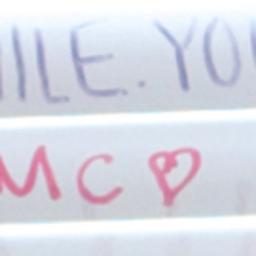 ILE. YOU
MC♡